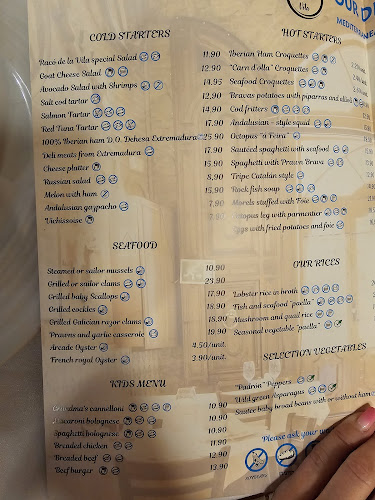 OUR D
MEDITERRANE
COLD STARTERS
Raco de la Vila special Salad 11.90
Goat Cheese Salad 12.90
Avocado Salad with Shrimps 14.95
Salt cod tartar 12.90
Salmon Tartar 14.90
Red Tuna Tartar 17.90
100% Iberian ham D.O. Dehesa Extremadura 25.90
Deli meats from Extremadura 17.90
Cheese platter 15.90
Russian salad 8.90
Melon with ham
Andalusian gazpacho
Vichissoise
SEAFOOD
Steamed or sailor mussels 10.90
Grilled or sailor clams 23.90
Grilled baby Scallops 17.90
Grilled cockles 18.90
Grilled Galician razor clams 18.90
Prawns and garlic casserole 19.90
Arcade Oyster 4.50/unit.
French royal Oyster 3.90/unit.
KIDS MENU
cannelloni 10.90
bolognese 10.90
Spaghetti bolognese 10.90
Breaded chicken 11.90
Breaded beef 12.90
Beef burger 13.90
HOT STARTERS
Iberian Ham Croquettes
"Carn d'olla" Croquettes
Seafood Croquettes
Bravas potatoes with piparras and alioli
Cod fritters
Andalusian - style squid
Octopus "a Feira"
Sauteed spaghetti with seafood
Spaghetti with Prawn Bravo
Tripe Catalan style
Rock fish soup
Morels stuffed with Foie
Octopus leg with parmentier
Eggs with fried potatoes and foie
OUR RICES
Lobster rice in broth
Fish and seafood "paella"
Mushroom and quail rice
Seasonal vegetable "paella"
SELECTION VEGETABLES
"Padron" Peppers
Wild green Asparagus
Sautee baby broad beans with or without ham
Please ask your